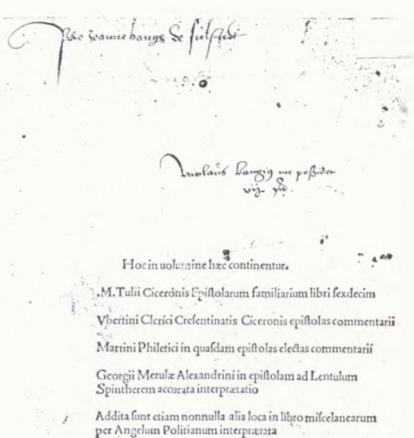 Pro Joanne bangs de
Nicolaus Bangius me possidet
Hoc in uolumine hæc continentur.
.M. Tulii Ciceronis Epistolarum familiarium libri sexdecim
Vbertini Clerici Crescentinatis Ciceronis epistolas commentarii
Martini Philetici in quasdam epistolas electas commentarii
Georgii Merulæ Alexandrini in epistolam ad Lentulum
Spintherem accurata interprætatio
Addita sunt etiam nonnulla alia loca in libro miscelanearum
per Angelum Politianum interprætata